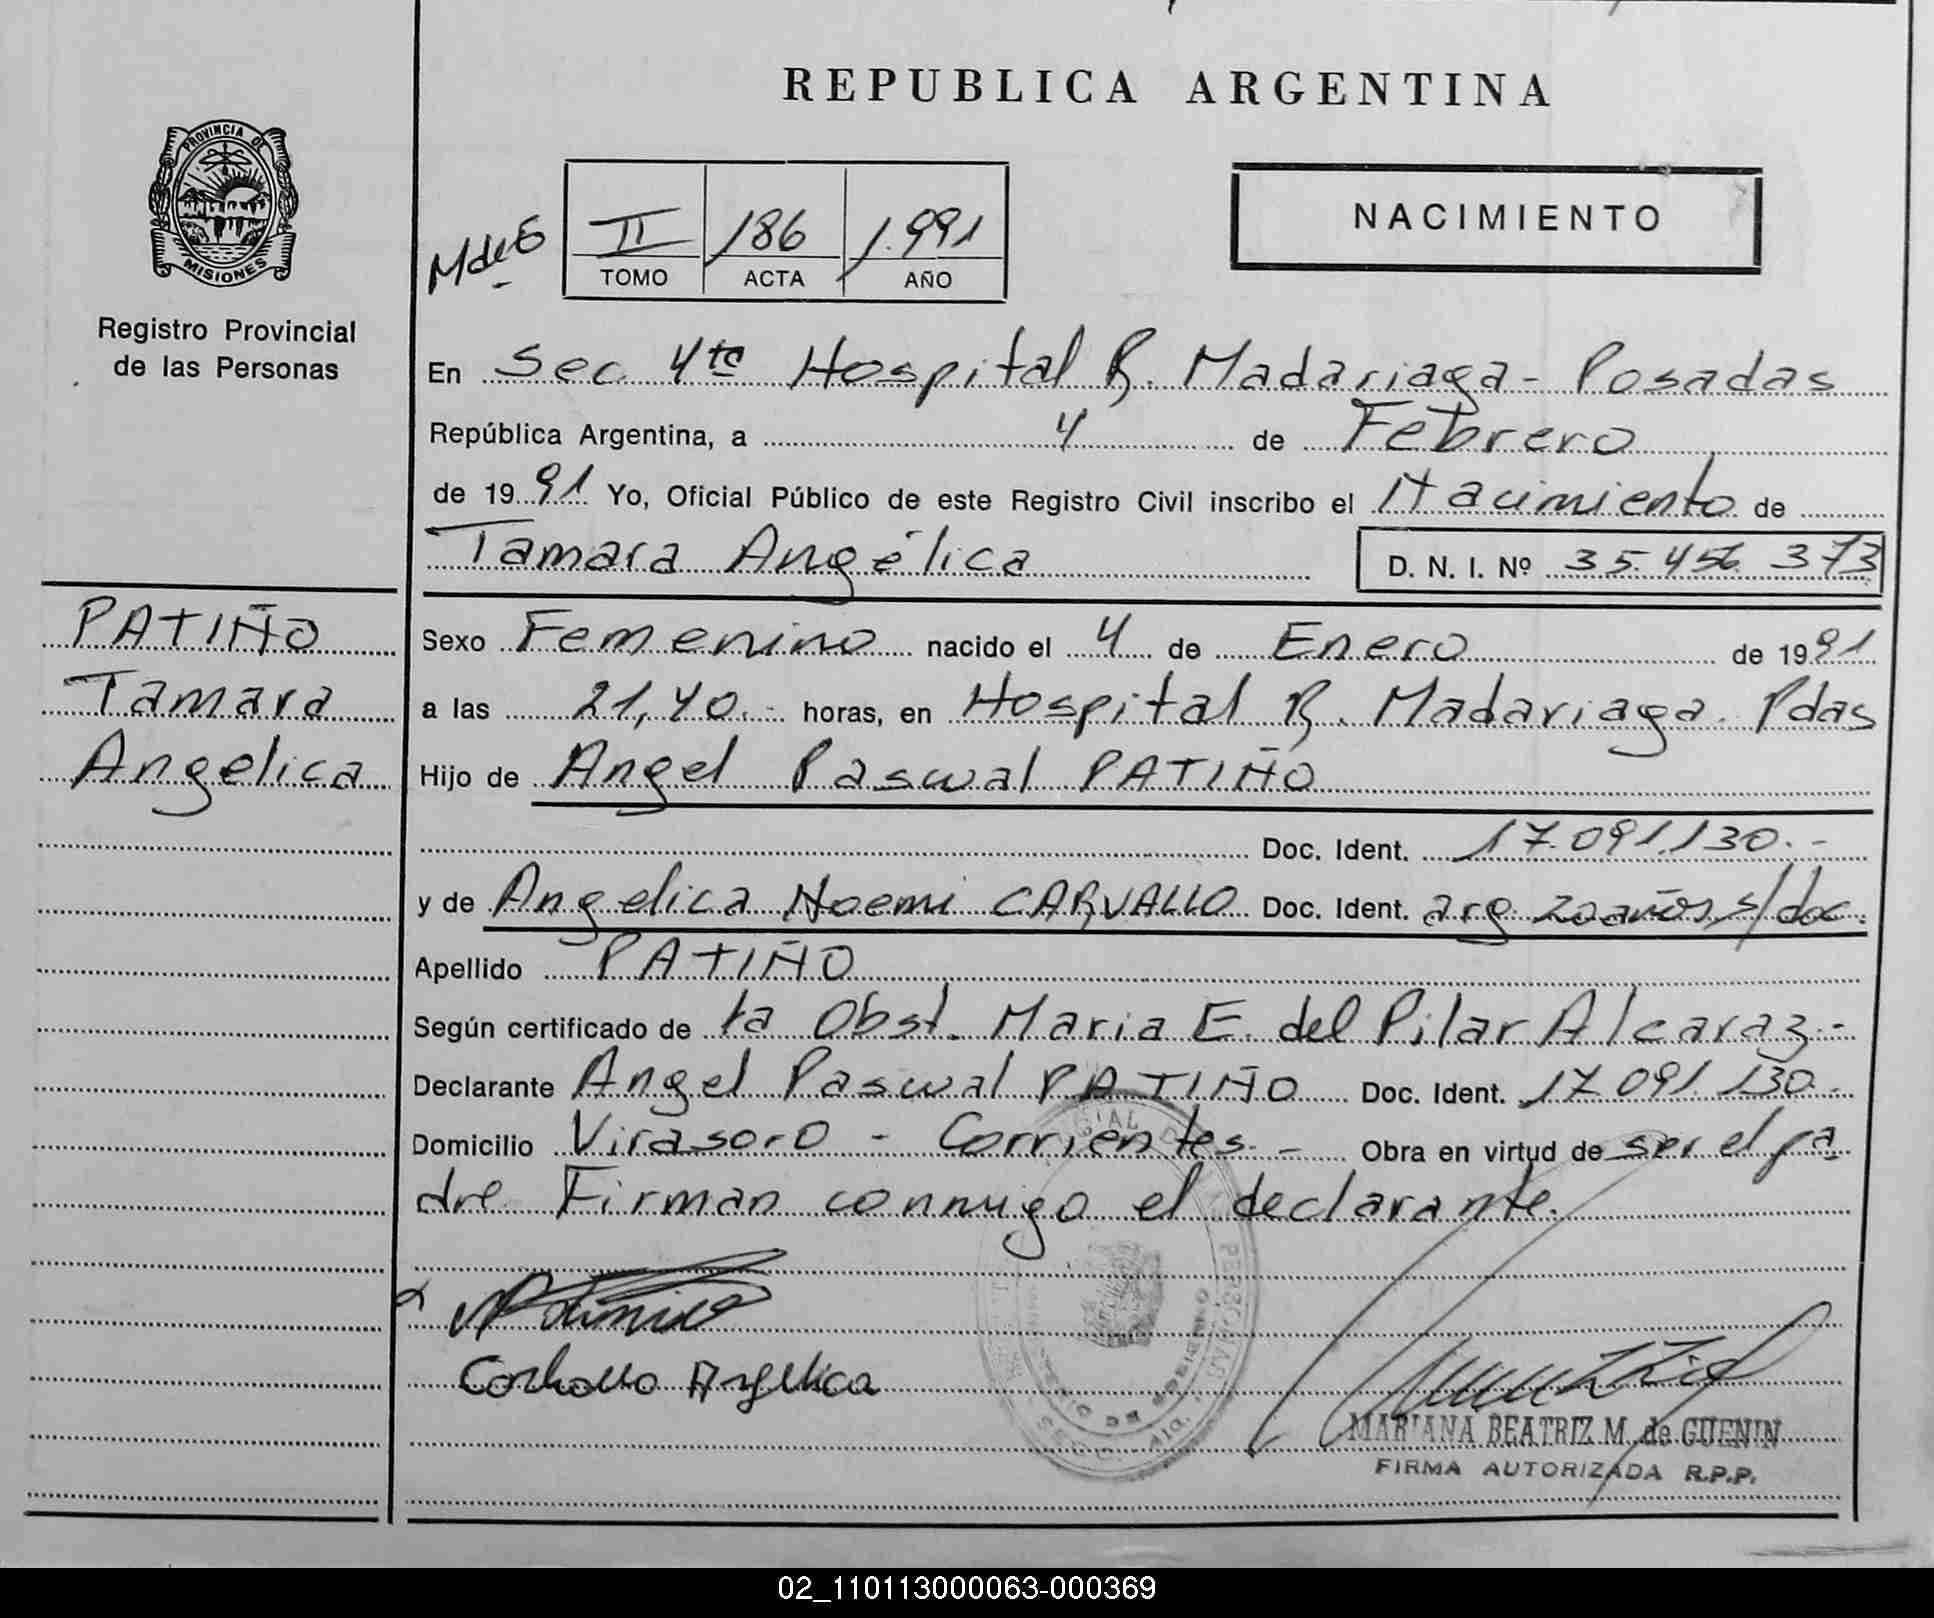 REPUBLICA ARGENTINA
PROVINCIA DE
MISIONES
Registro Provincial
de las Personas
II 186 1.991
TOMO ACTA AÑO
NACIMIENTO
En Sec. 4ta Hospital R. Madariaga - Posadas
República Argentina, a 4 de Febrero
de 1991 Yo, Oficial Público de este Registro Civil inscribo el Nacimiento de
Tamara Angélica D. N. I. Nº 35.456.373
PATIÑO
Tamara
Angelica
Sexo Femenino nacido el 4 de Enero de 1991
a las 21,40.- horas, en Hospital R. Madariaga. Pdas
Hijo de Angel Pascual PATIÑO
Doc. Ident. 17.091.130.-
y de Angelica Noemi CARVALLO Doc. Ident. arg. 20 años s/doc.
Apellido PATIÑO
Según certificado de la Obst. Maria E. del Pilar Alcaraz.-
Declarante Angel Pascual PATIÑO Doc. Ident. 17.091.130.-
Domicilio Virasoro - Corrientes.- Obra en virtud de ser el pa
dre. Firman conmigo el declarante.
Angelica
MARIANA BEATRIZ M. de GUENIN
FIRMA AUTORIZADA R.P.P.
02_110113000063-000369